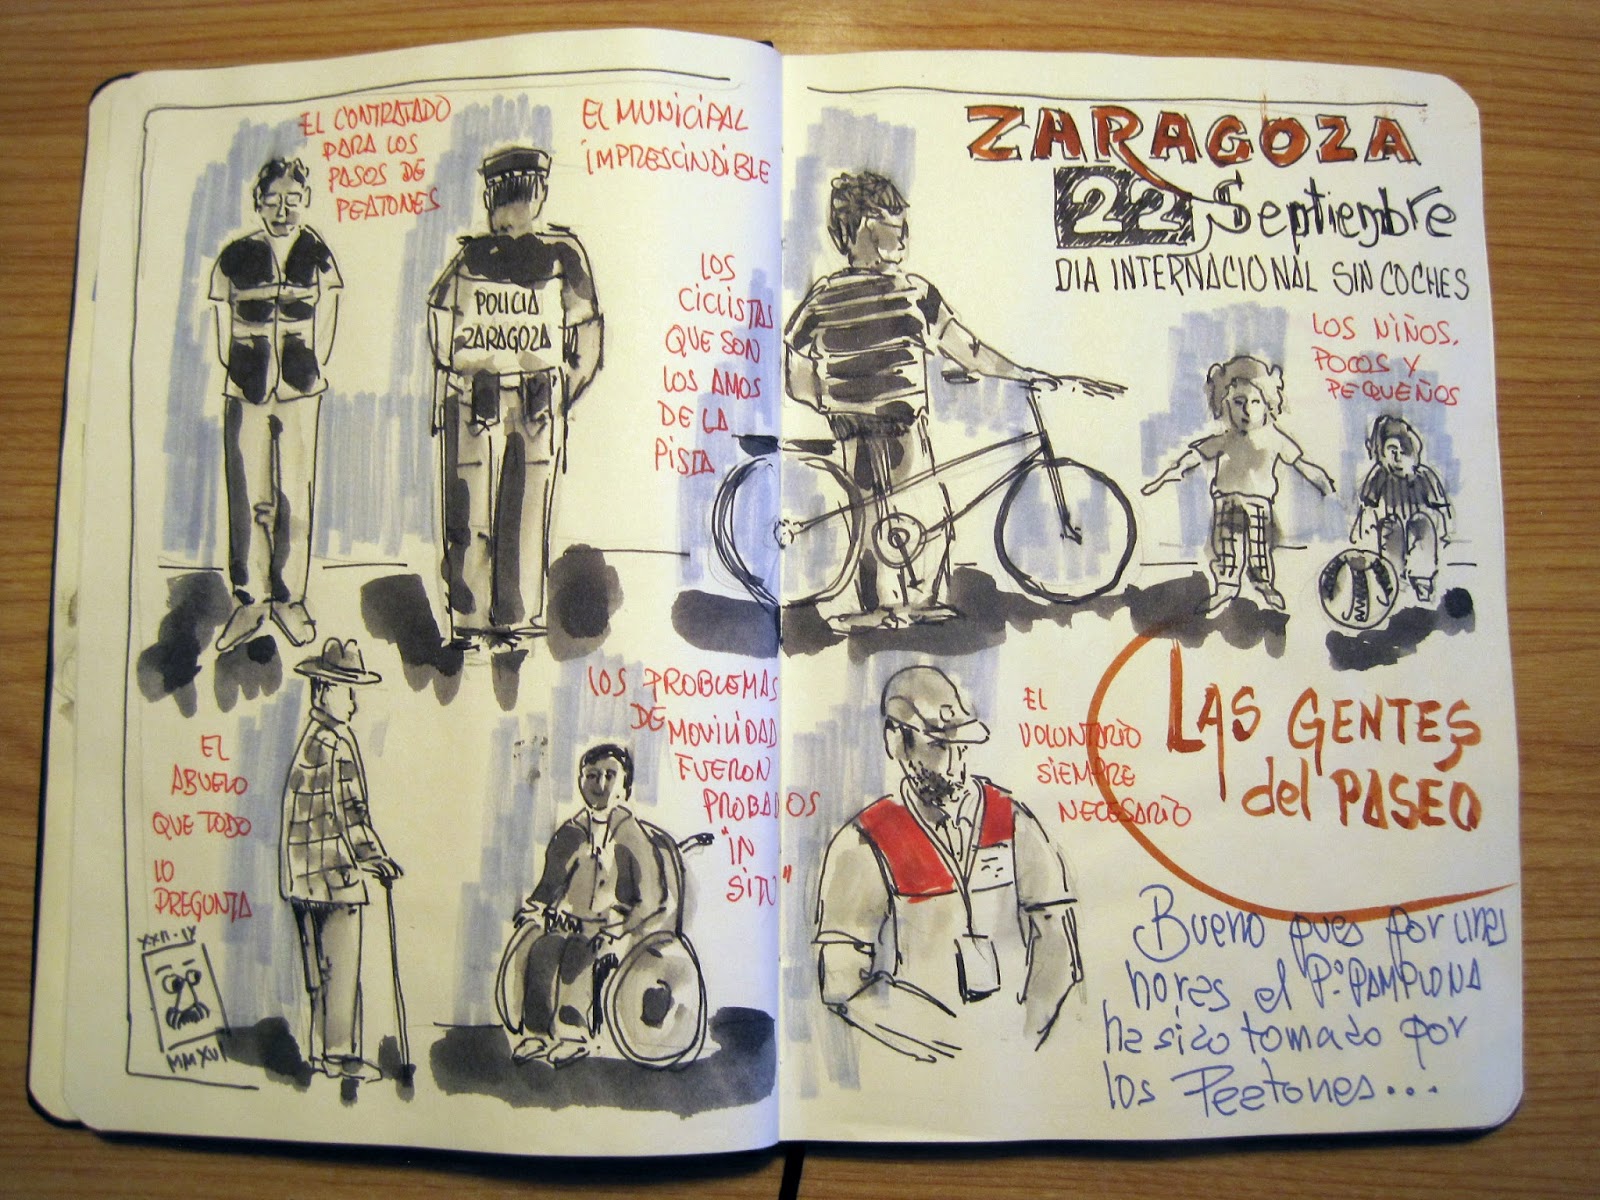 EL CONTRATADO
PARA LOS
PASOS DE
PEATONES
EL MUNICIPAL
IMPRESCINDIBLE
POLICIA
ZARAGOZA
LOS
CICLISTAS
QUE SON
LOS AMOS
DE LA
PISTA
EL
ABUELO
QUE TODO
LO
PREGUNTA
XXII·IX
MMXVI
LOS PROBLEMAS
DE MOVILIDAD
FUERON
PROBADOS
"IN
SITU"
ZARAGOZA
22 Septiembre
DIA INTERNACIONAL SIN COCHES
LOS NIÑOS,
POCOS Y
PEQUEÑOS
EL
VOLUNTARIO
SIEMPRE
NECESARIO
LAS GENTES
del PASEO
Bueno pues por unas
horas el Pº PAMPLONA
ha sido tomado por
los Peatones...